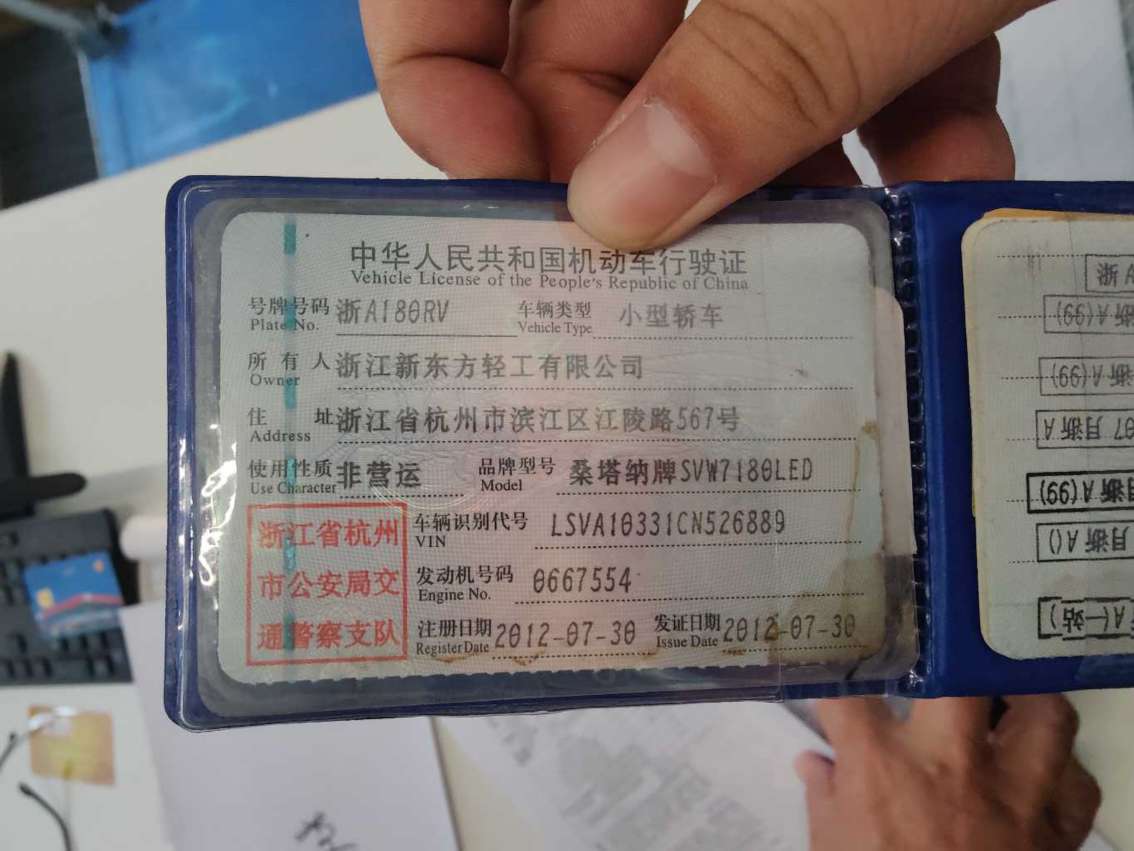 中华人民共和国机动车行驶证
Vehicle License of the People's Republic of China
号牌号码 浙A180RV 车辆类型 小型轿车
Plate No. Vehicle Type
所有人 浙江新东方轻工有限公司
Owner
住址 浙江省杭州市滨江区江陵路567号
Address
使用性质 非营运 品牌型号 桑塔纳牌SVW7180LED
Use Character Model
浙江省杭州
市公安局交
通警察支队
车辆识别代号 LSVA10331CN526889
VIN
发动机号码 0667554
Engine No.
注册日期 2012-07-30 发证日期 2012-07-30
Register Date Issue Date
浙A